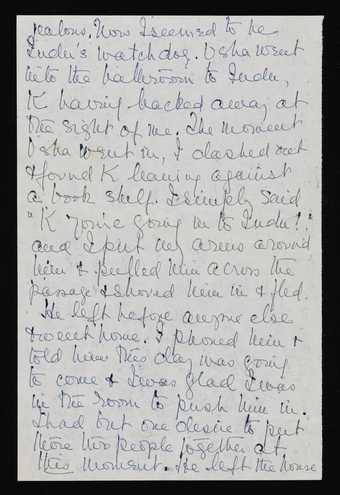 jealous. Now I seemed to be
Indu's watchdog. Usha went
into the ballroom to Indu,
K having backed away at
the sight of me. The moment
Usha went in, I dashed out
& found K leaning against
a book shelf. I simply said
"K you're going in to Indu!"
and I put my arms around
him & pulled him across the
passage & shoved him in & fled.
He left before anyone else
& went home. I phoned him &
told him this day was going
to come & I was glad I was
in the room to push him in.
I had but one desire to put
these two people together at
this moment. He left the house